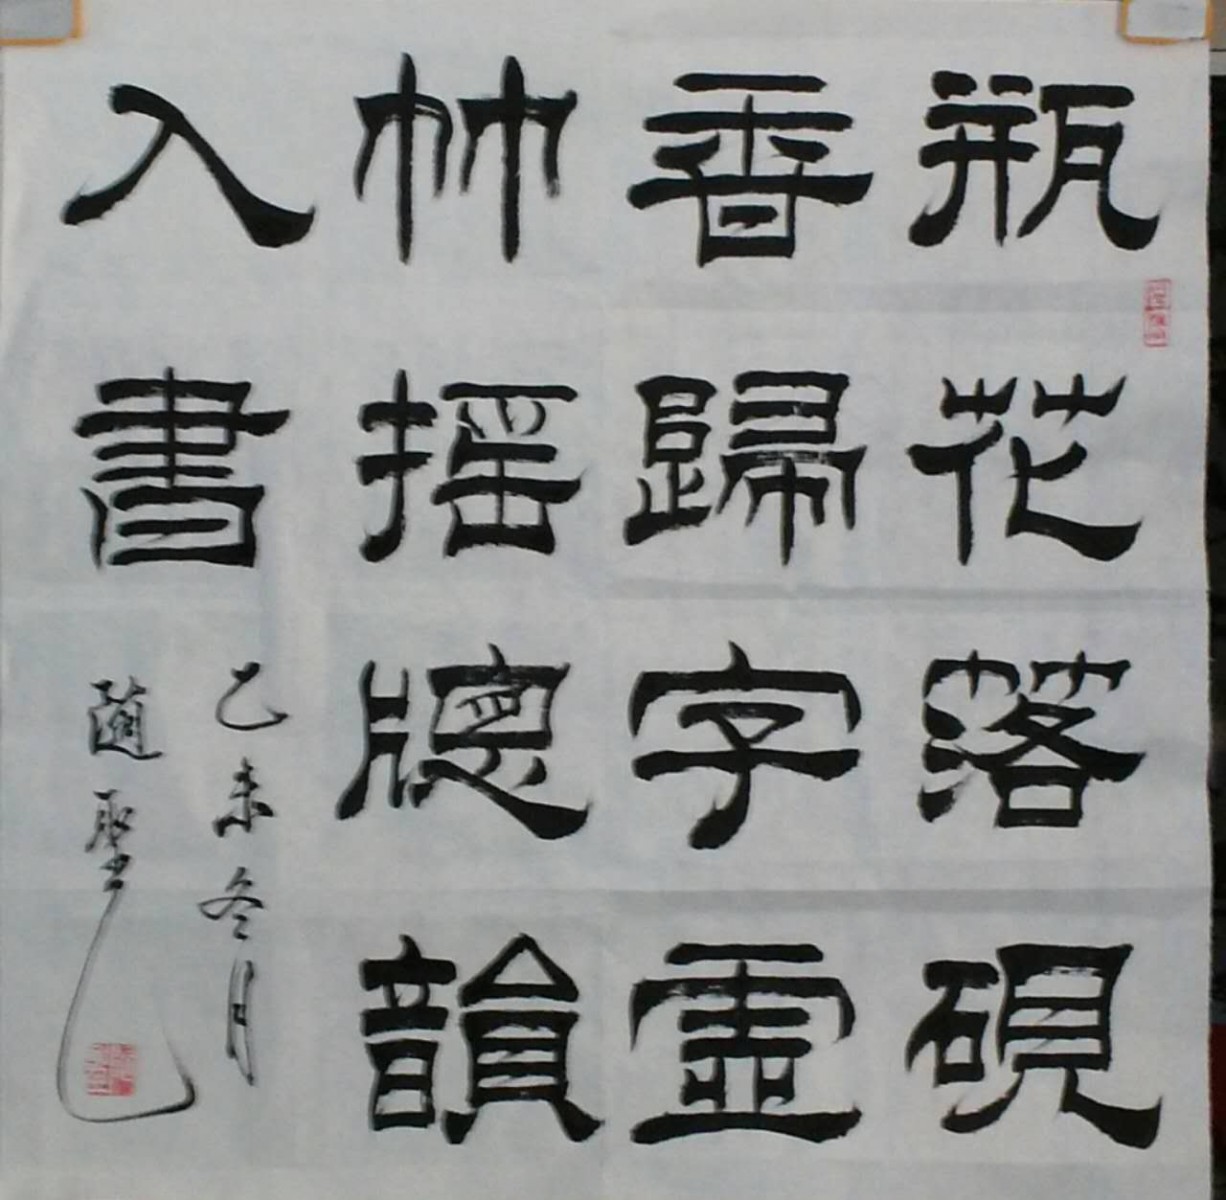 瓶花落硯
香歸字霊
竹搖牕韻
入書
乙未冬月
隨聖